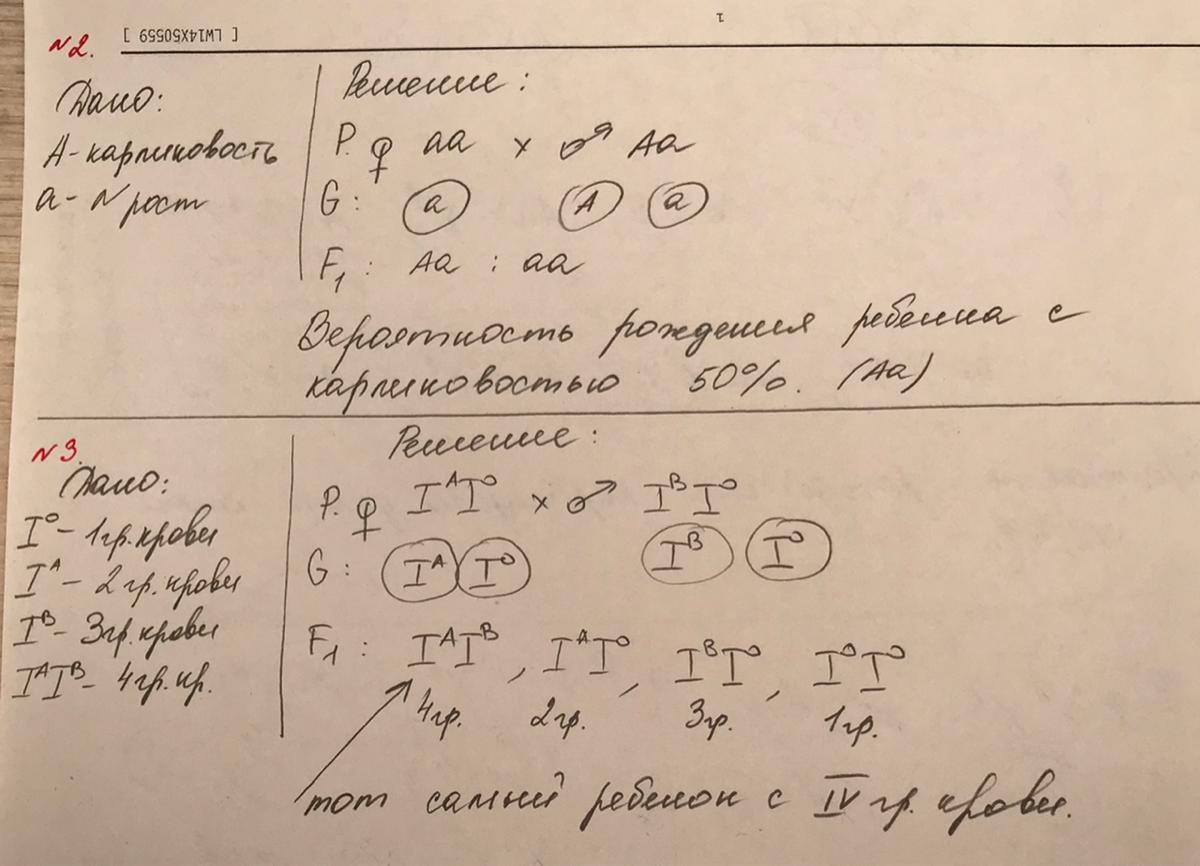 1
[ LW14X50559 ]
№2.
Дано:
А - карликовость
а - N рост
Решение:
P. ♀ аа × ♂ Аа
G: а А а
F₁: Аа : аа
Вероятность рождения ребенка с
карликовостью 50%. (Аа)
№3.
Дано:
I⁰ - 1гр. крови
Iᴬ - 2гр. крови
Iᴮ - 3гр. крови
IᴬIᴮ - 4гр. кр.
Решение:
P. ♀ IᴬI⁰ × ♂ IᴮI⁰
G: Iᴬ I⁰ Iᴮ I⁰
F₁: IᴬIᴮ, IᴬI⁰, IᴮI⁰, I⁰I⁰
4гр. 2гр. 3гр. 1гр.
тот самый ребенок с IV гр. крови.